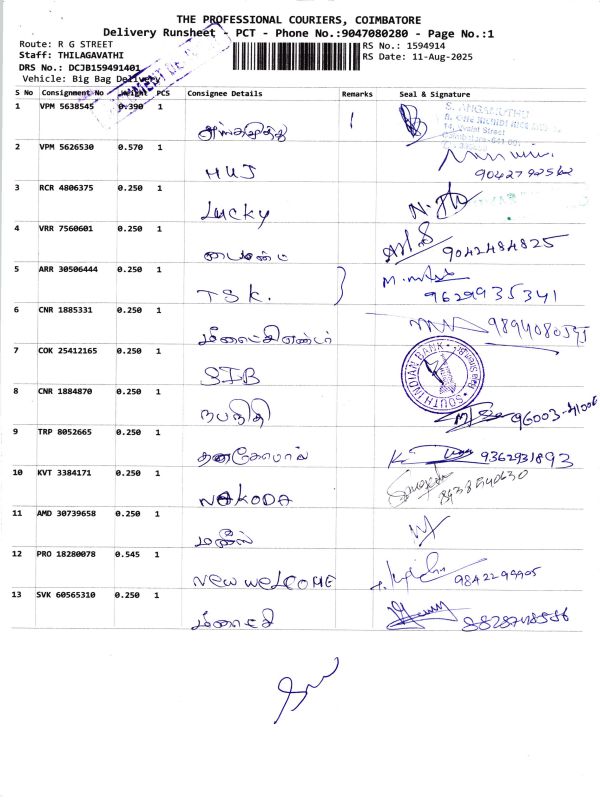 THE PROFESSIONAL COURIERS, COIMBATORE
Delivery Runsheet - PCT - Phone No.:9047080280 - Page No.:1
Route: R G STREET
RS No.: 1594914
Staff: THILAGAVATHI
RS Date: 11-Aug-2025
DRS No.: DCJB159491401
Vehicle: Big Bag Delivery
S No Consignment No Weight PCS Consignee Details Remarks Seal & Signature
1 VPM 5638545 0.390 1
அங்கமுத்து
S. ANGAMUTHU
2 VPM 5626530 0.570 1
MUJ
3 RCR 4806375 0.250 1
Lucky
4 VRR 7560601 0.250 1
9042484825
5 ARR 30506444 0.250 1
TSK.
9629935341
6 CNR 1885331 0.250 1
7 COK 25412165 0.250 1
SIB
SOUTH INDIAN BANK
8 CNR 1884870 0.250 1
நபநிதி
9 TRP 8052665 0.250 1
தனகோபால்
9362931893
10 KVT 3384171 0.250 1
NAKODA
11 AMD 30739658 0.250 1
12 PRO 18280078 0.545 1
New welcome
13 SVK 60565310 0.250 1
மீனாட்சி